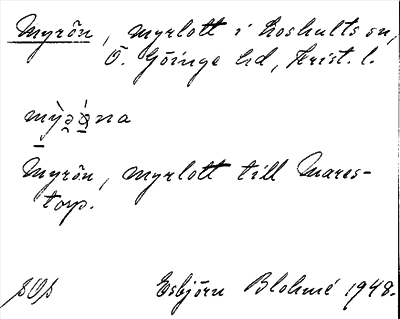 Myrön, myrlott i Loshults sn,
Ö. Göinge hd, Krist. l.
Myrön, myrlott till Mares-
torp.
Esbjörn Blohmé 1948.